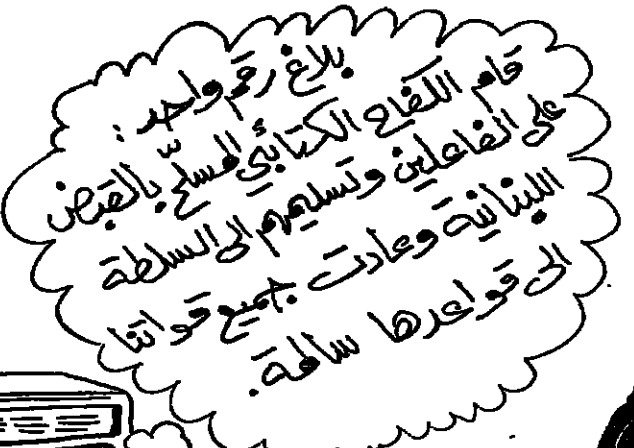 بلاغ رقم واحد :
قام الكفاح الكتابي المسلح بالقبض
على الفاعلين وتسليمهم الى السلطة
اللبنانية وعادت جميع قواتنا
الى قواعدها سالمة.